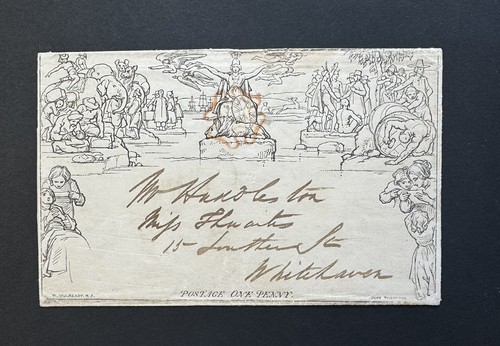 Mr Huddleston
Miss Thwaites
15
Whitehaven
POSTAGE ONE PENNY.
W. MULREADY. R.A.
JOHN THOMPSON